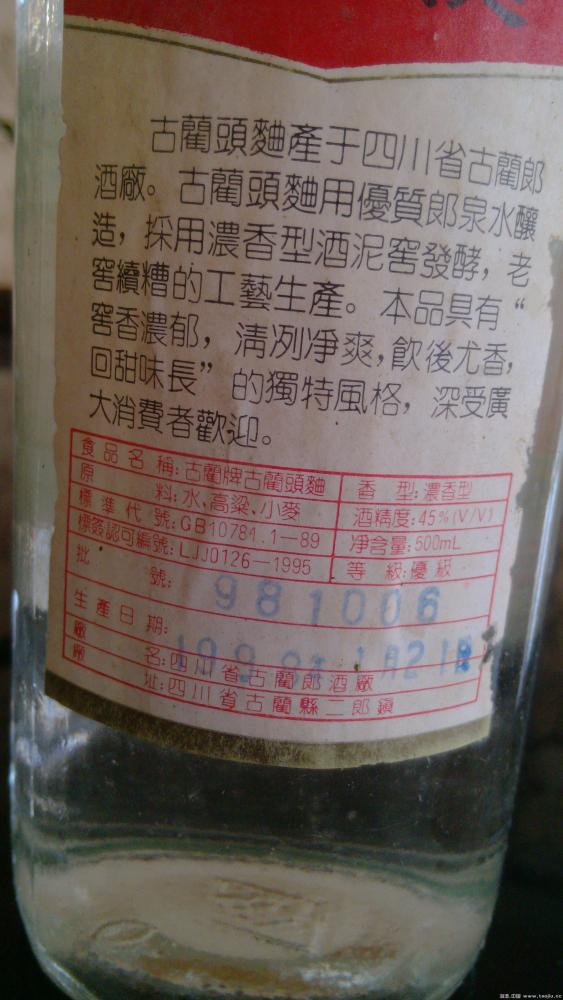 古藺頭麯產于四川省古藺郎
酒廠。古藺頭麯用優質郎泉水釀
造，採用濃香型酒泥窖發酵，老
窖續糟的工藝生產。本品具有“
窖香濃郁，清冽凈爽，飲後尤香，
回甜味長”的獨特風格，深受廣
大消費者歡迎。
食品名稱:古藺牌古藺頭麯 香型:濃香型
原料:水、高粱、小麥 酒精度:45%(V/V)
標準代號:GB10781.1—89 净含量:500mL
標簽認可編號:LJJ0126—1995 等級:優級
批號: 981006
生產日期: 1月21日
廠名:四川省古藺郎酒廠
廠址:四川省古藺縣二郎鎮
www.taojiu.cc